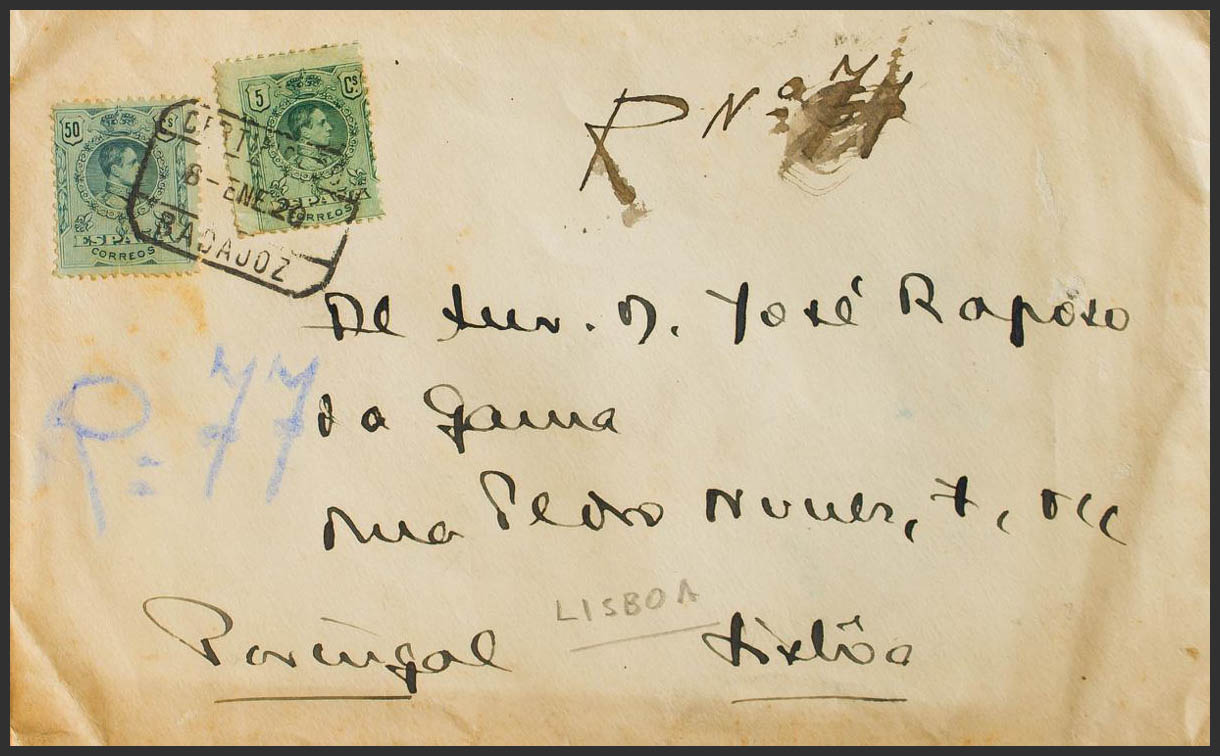 50 Cs
ESPAÑA
CORREOS
5 Cs
ESPAÑA
CORREOS
CERTIF
8-ENE.20
BADAJOZ
R Nº 77
R= 77
José Raposo
da Gama
Rua Pedro Nunes, 7,
LISBOA
Portugal Lisbôa